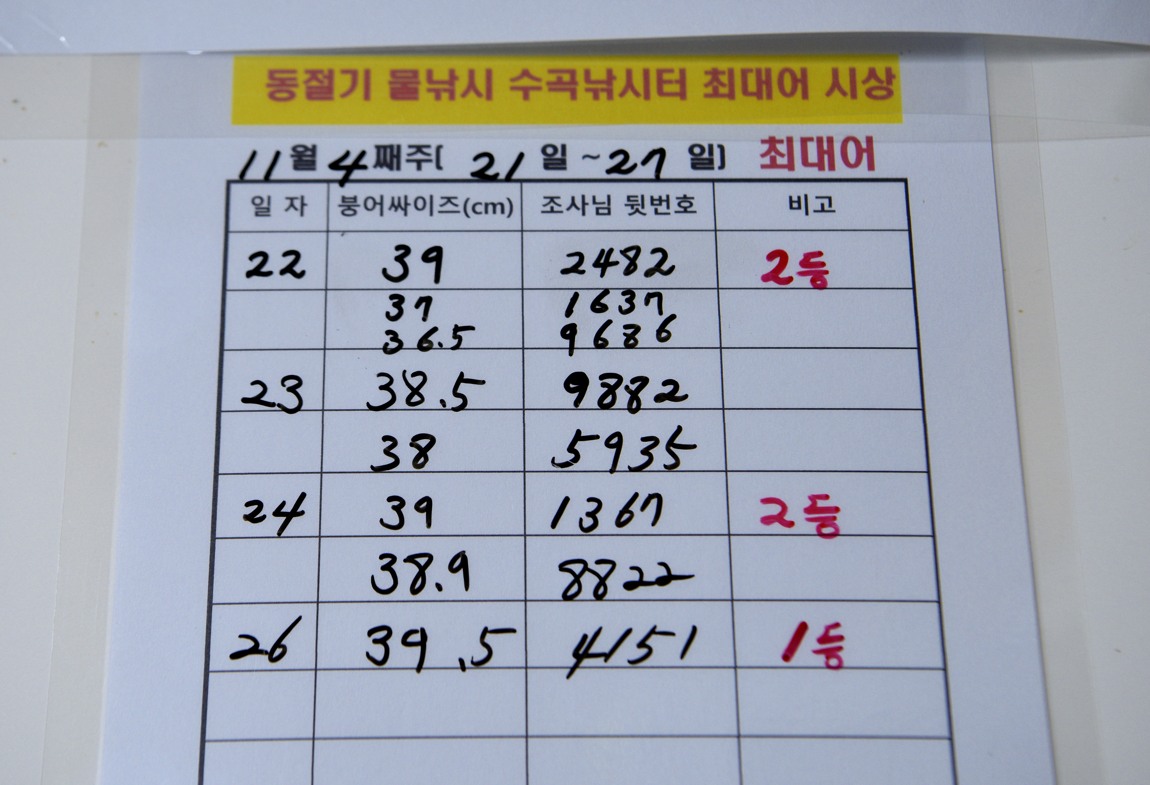 동절기 물낚시 수곡낚시터 최대어 시상
11월 4째주( 21일 ~ 27일) 최대어
일 자 붕어싸이즈(cm) 조사님 뒷번호 비고
22 39 2482 2등
37 1637
36.5 9686
23 38.5 9882
38 5935
24 39 1367 2등
38.9 8822
26 39.5 4151 1등